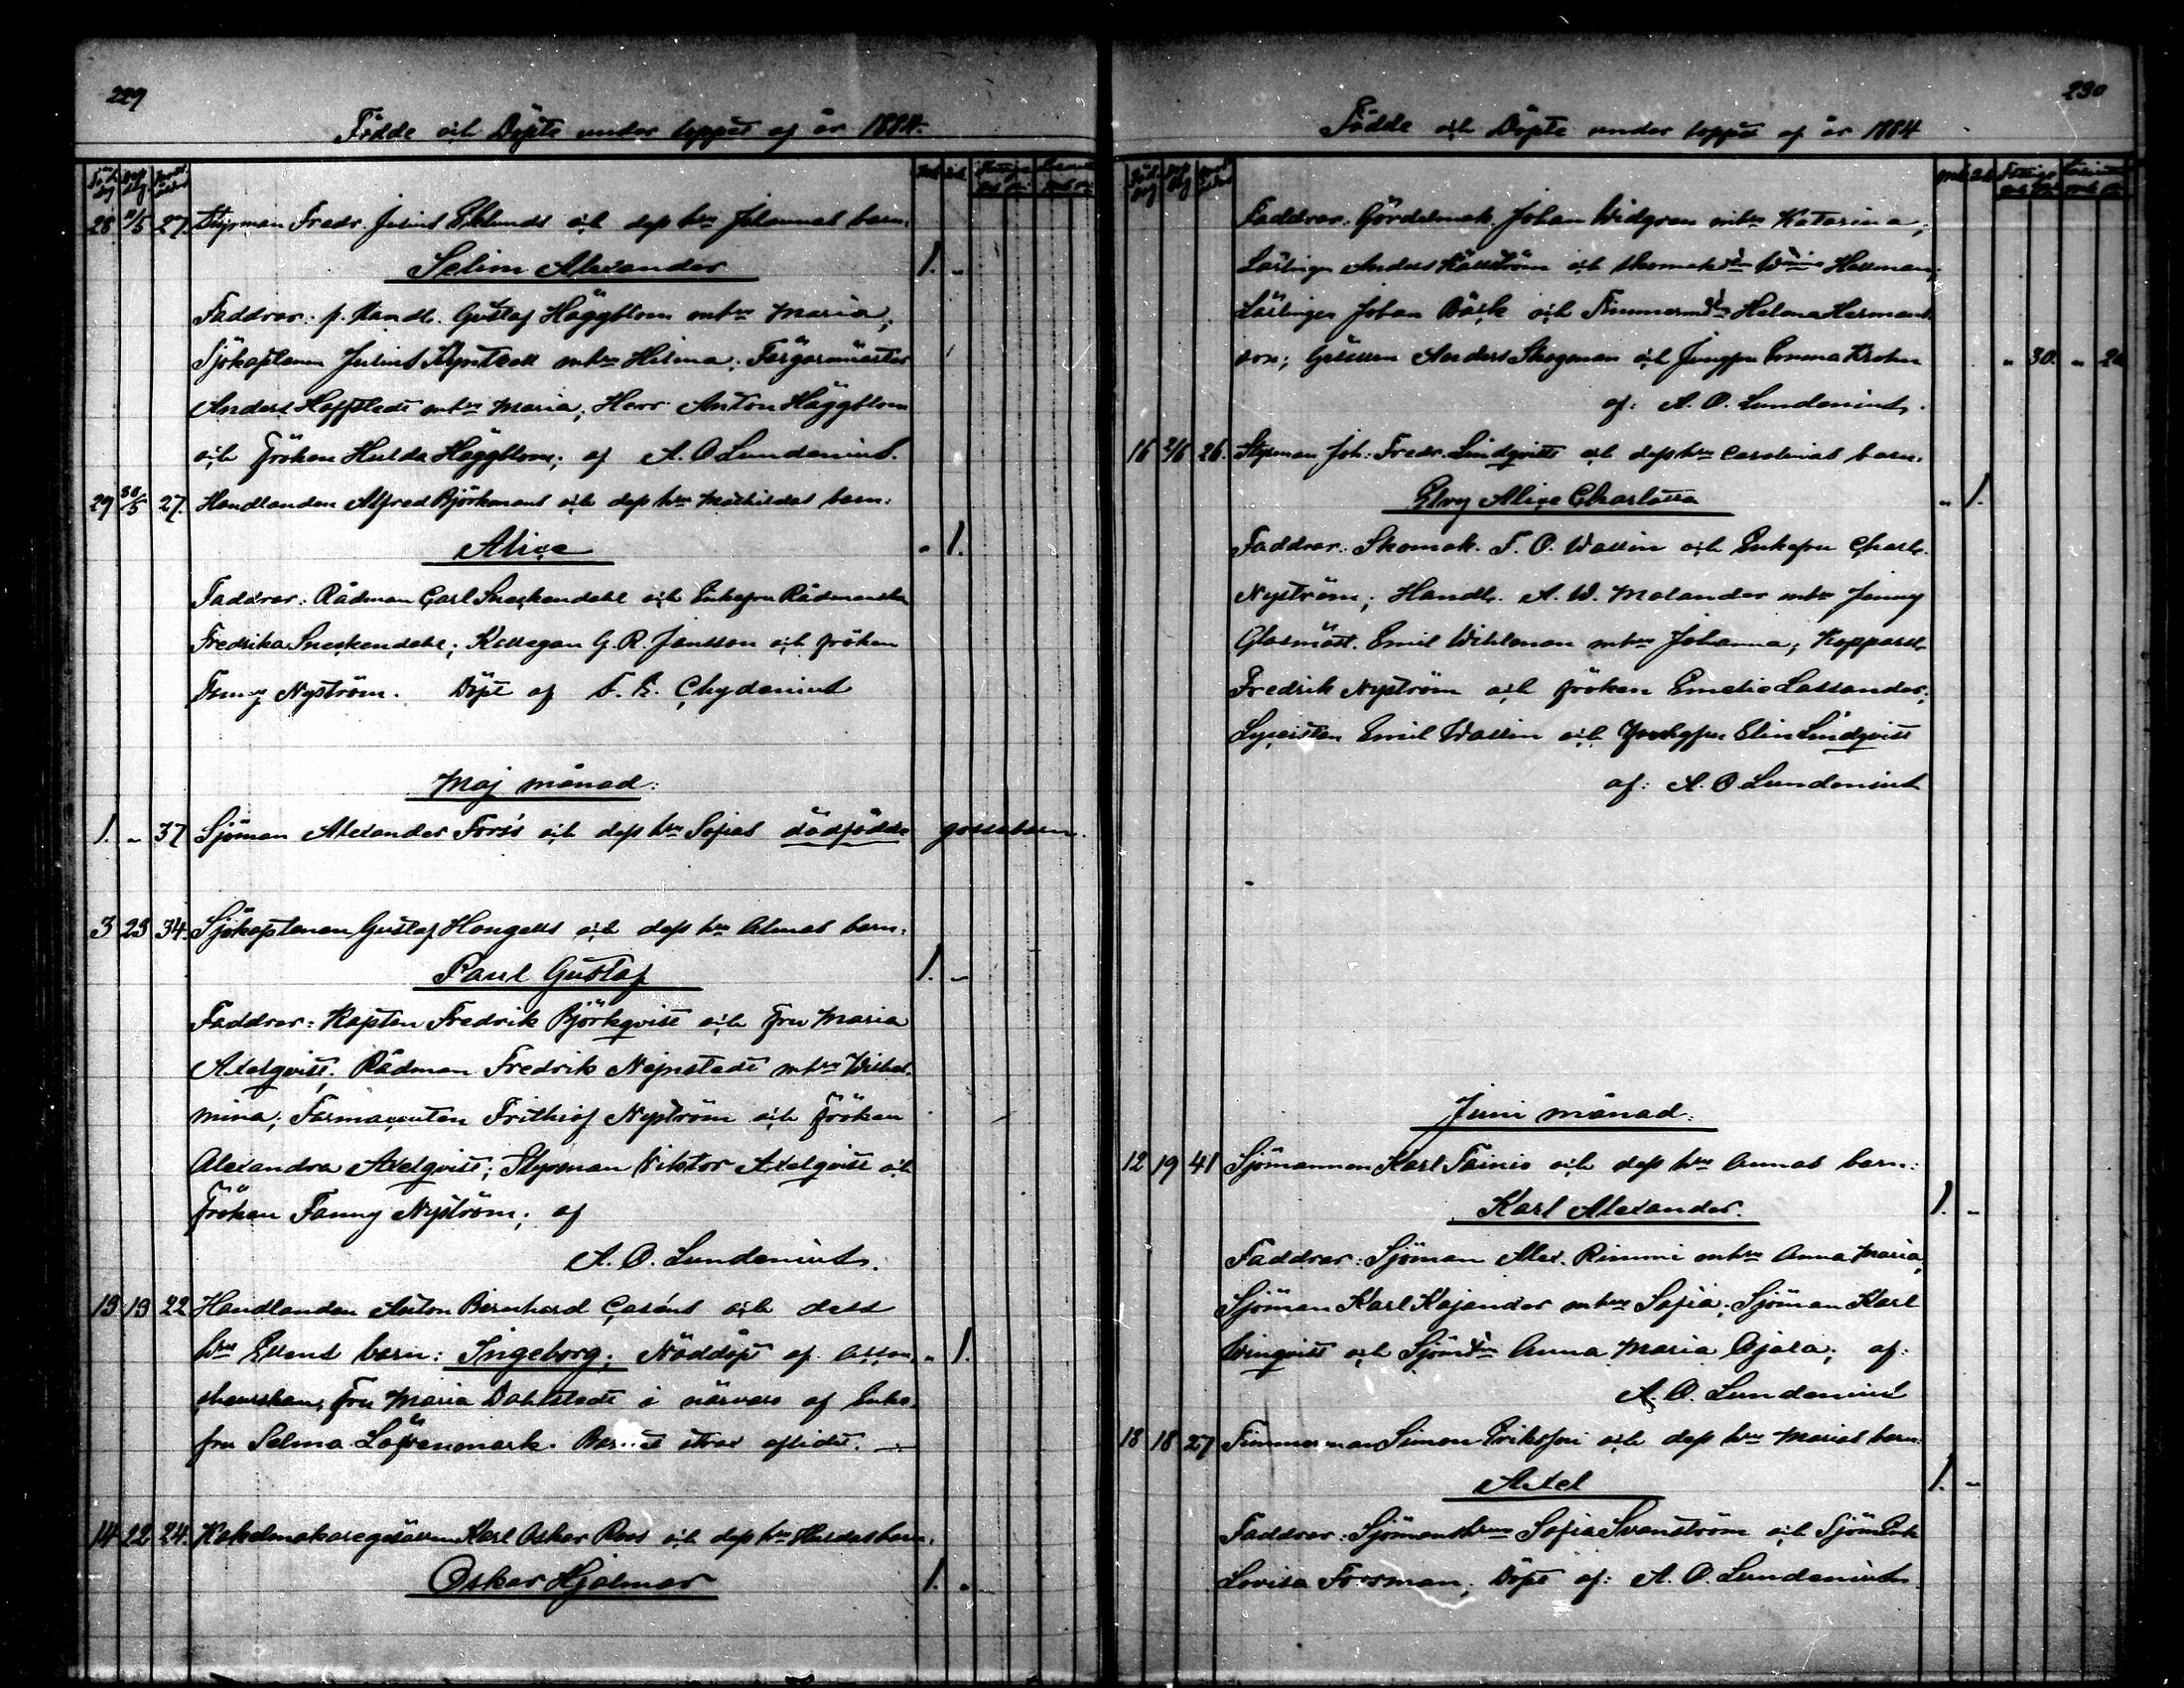 229
Födde och Döpte under loppet af år 1884.
28 11/5 27. Styrman Fredr. Julius Eklunds och dess hu Johannas barn:
Selim Alexander 1. "
Faddrar: f. Handl. Gustaf Häggblom m hu Maria;
Sjökaptenen Julius m hu Hilma; Färgaremäster
Anders Hoffstedt m hu Maria; Herr Anton Häggblom
och Fröken Hulda Häggblom; af A. O. Lundenius.
29 30/5 27. Handlanden Alfred Björkmans och dess hu Mathildas barn:
Alice " 1.
Faddrar: Rådman Carl Sneckendahl och Enkefru Rådmanskan
Fredrika Sneckendahl; Kollegan G. R. Jansson och fröken
Fanny Nyström. Döpt af F. E. Chydenius
Maj månad:
1. " 37 Sjöman Alexander Forss och dess hu Sofias dödfödde gossebarn.
3 23 34. Sjökaptenen Gustaf Hongells och dess hu Almas barn:
Paul Gustaf 1. "
Faddrar: Kapten Fredrik Björkqvist och Fru Maria
Axelqvist; Rådman Fredrik Nejnstedt m hu Wilhel-
mina; Farmaceuten Frithiof Nyström och Fröken
Alexandra Axelqvist; Styrman Viktor Axelqvist och
Fröken Fanny Nyström; af
A. O. Lundenius.
13 13 22 Handlanden Anton Bernhard Caséns och dess
hus Ellens barn: Ingeborg; Nöddöpt af Accou- " 1.
cheuskan, Fru Maria Dahlstedt i närvaro af Enke-
fru Selma Löfvenmark. Barnet strax aflidit.
14 22 24. Kakelmakaregesällen Karl Oskar Roos och dess hu Huldas barn:
Oskar Hjalmar 1. "
230
Födde och Döpte under loppet af år 1884
Faddrar: Gördelmak. Johan Widgren m hu Katarina;
Lärlingen Anders Källström och Skomak Hellman;
Lärlingen Johan Bäck och Timmerm Helena Hermans-
son; Gesällen Anders Skogman och Jungfru Emma Krohn " 30. " 20
af: A. O. Lundenius.
16 2/6 26. Styrman Joh. Fredr. Lindqvists och dess hu Carolinas barn:
Elvy Alice Charlotta " 1.
Faddrar: Skomak. F. O. Wallin och Enkefru Charl.
Nyström; Handl. A. W. Melander m hu Jenny
Glasmäst. Emil Wihlman m hu Johanna; Koppарsl.
Fredrik Nyström och fröken Emelie Lassander;
Lyceisten Emil Wallin och Jungfru Elin Lindqvist
af: A. O. Lundenius
Juni månad:
12 19 41 Sjömannen Karl Tainio och dess hu Annas barn:
Karl Alexander. 1. "
Faddrar: Sjöman Alex. Rimmi m hu Anna Maria;
Sjöman Karl Kajander m hu Sofia; Sjöman Karl
Winqvist och Sjöm Anna Maria Ojala; af:
A. O. Lundenius
18 18 27 Timmerman Simon Erikssons och dess hu Marias barn:
Axel 1. "
Faddrar: Sjömanshu Sofia Svanström och Sjöm Enk
Lovisa Forsman; Döpt af: A. O. Lundenius.